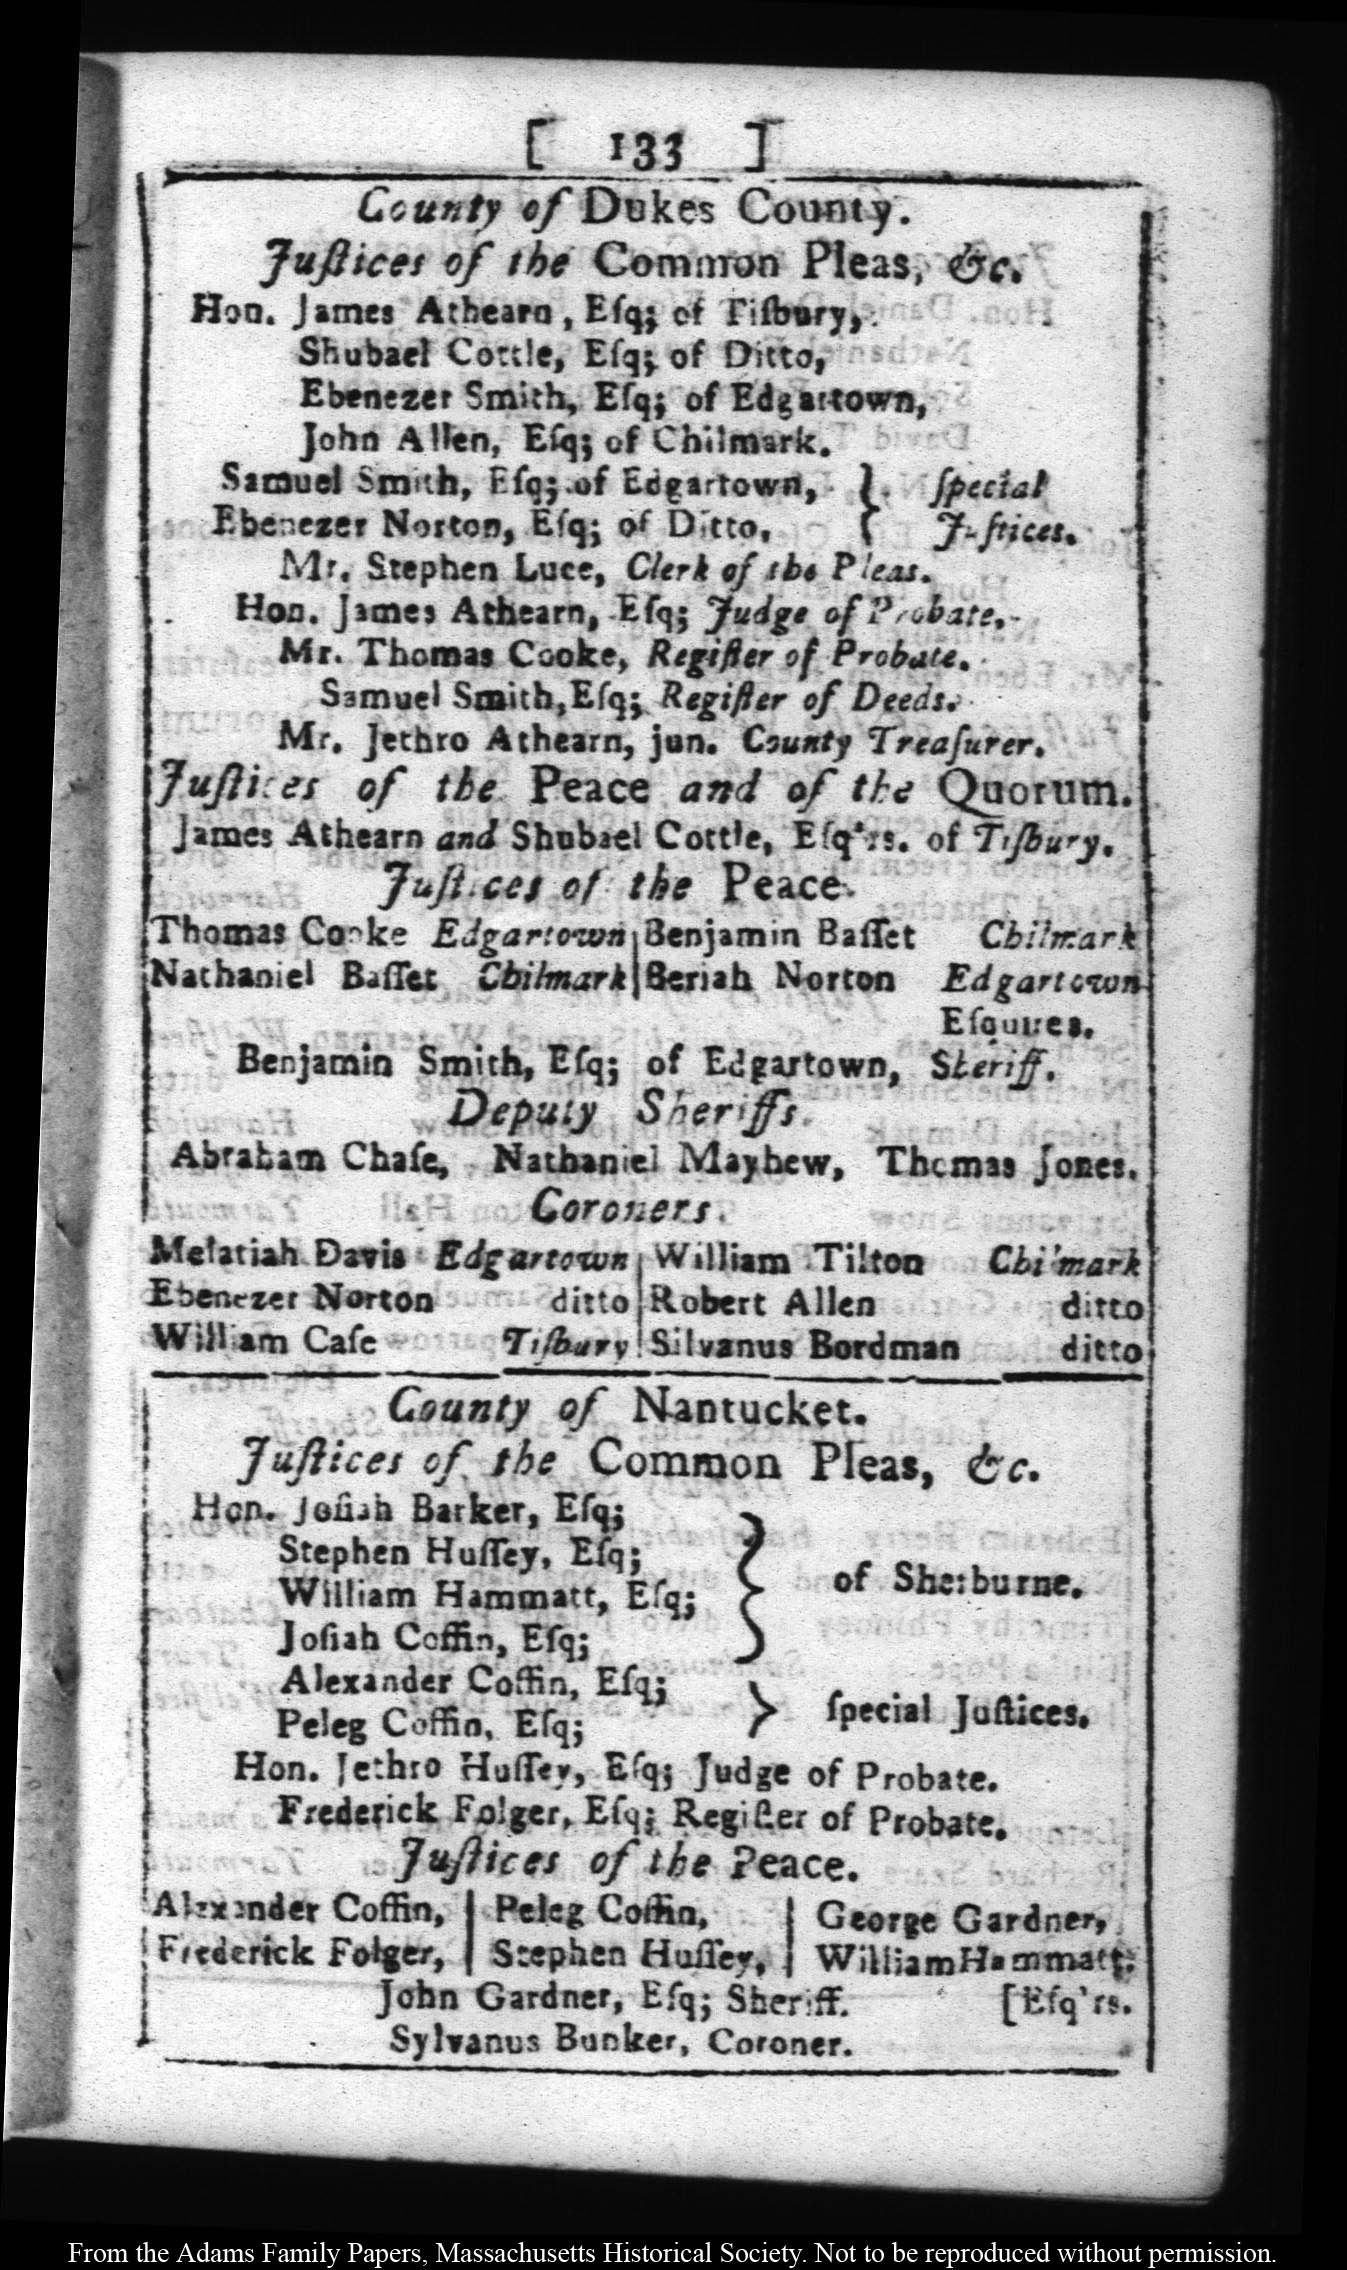 [ 133 ]
County of Dukes County.
Juſtices of the Common Pleas, &c.
Hon. James Athearn, Eſq; of Tiſbury,
Shubael Cottle, Eſq; of Ditto,
Ebenezer Smith, Eſq; of Edgartown,
John Allen, Eſq; of Chilmark.
Samuel Smith, Eſq; of Edgartown, } ſpecial
Ebenezer Norton, Eſq; of Ditto, } Juſtices.
Mr. Stephen Luce, Clerk of the Pleas.
Hon. James Athearn, Eſq; Judge of Probate.
Mr. Thomas Cooke, Regiſter of Probate.
Samuel Smith, Eſq; Regiſter of Deeds.
Mr. Jethro Athearn, jun. County Treaſurer.
Juſtices of the Peace and of the Quorum.
James Athearn and Shubael Cottle, Eſq'rs. of Tiſbury.
Juſtices of the Peace.
Thomas Cooke Edgartown | Benjamin Baſſet Chilmark
Nathaniel Baſſet Chilmark | Beriah Norton Edgartown
Eſquires.
Benjamin Smith, Eſq; of Edgartown, Sheriff.
Deputy Sheriffs.
Abraham Chaſe, Nathaniel Mayhew, Thomas Jones.
Coroners.
Melatiah Davis Edgartown | William Tilton Chilmark
Ebenezer Norton ditto | Robert Allen ditto
William Caſe Tiſbury | Silvanus Bordman ditto
County of Nantucket.
Juſtices of the Common Pleas, &c.
Hon. Joſiah Barker, Eſq;
Stephen Huſſey, Eſq;
William Hammatt, Eſq; } of Sherburne.
Joſiah Coffin, Eſq;
Alexander Coffin, Eſq; } ſpecial Juſtices.
Peleg Coffin, Eſq;
Hon. Jethro Huſſey, Eſq; Judge of Probate.
Frederick Folger, Eſq; Regiſter of Probate.
Juſtices of the Peace.
Alexander Coffin, | Peleg Coffin, | George Gardner,
Frederick Folger, | Stephen Huſſey, | William Hammatt,
John Gardner, Eſq; Sheriff. [Eſq'rs.
Sylvanus Bunker, Coroner.
From the Adams Family Papers, Massachusetts Historical Society. Not to be reproduced without permission.